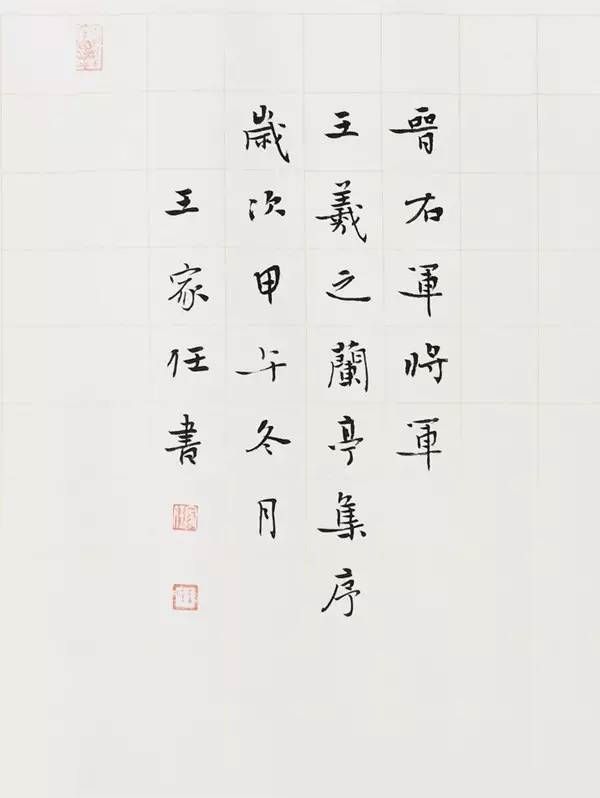 晉右軍將軍
王羲之蘭亭集序
歲次甲午冬月
王家任書